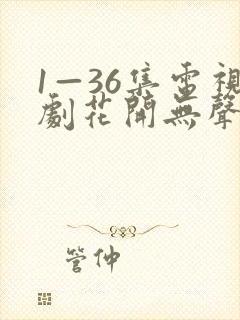 1—36集電視
劇花開無聲
管仲